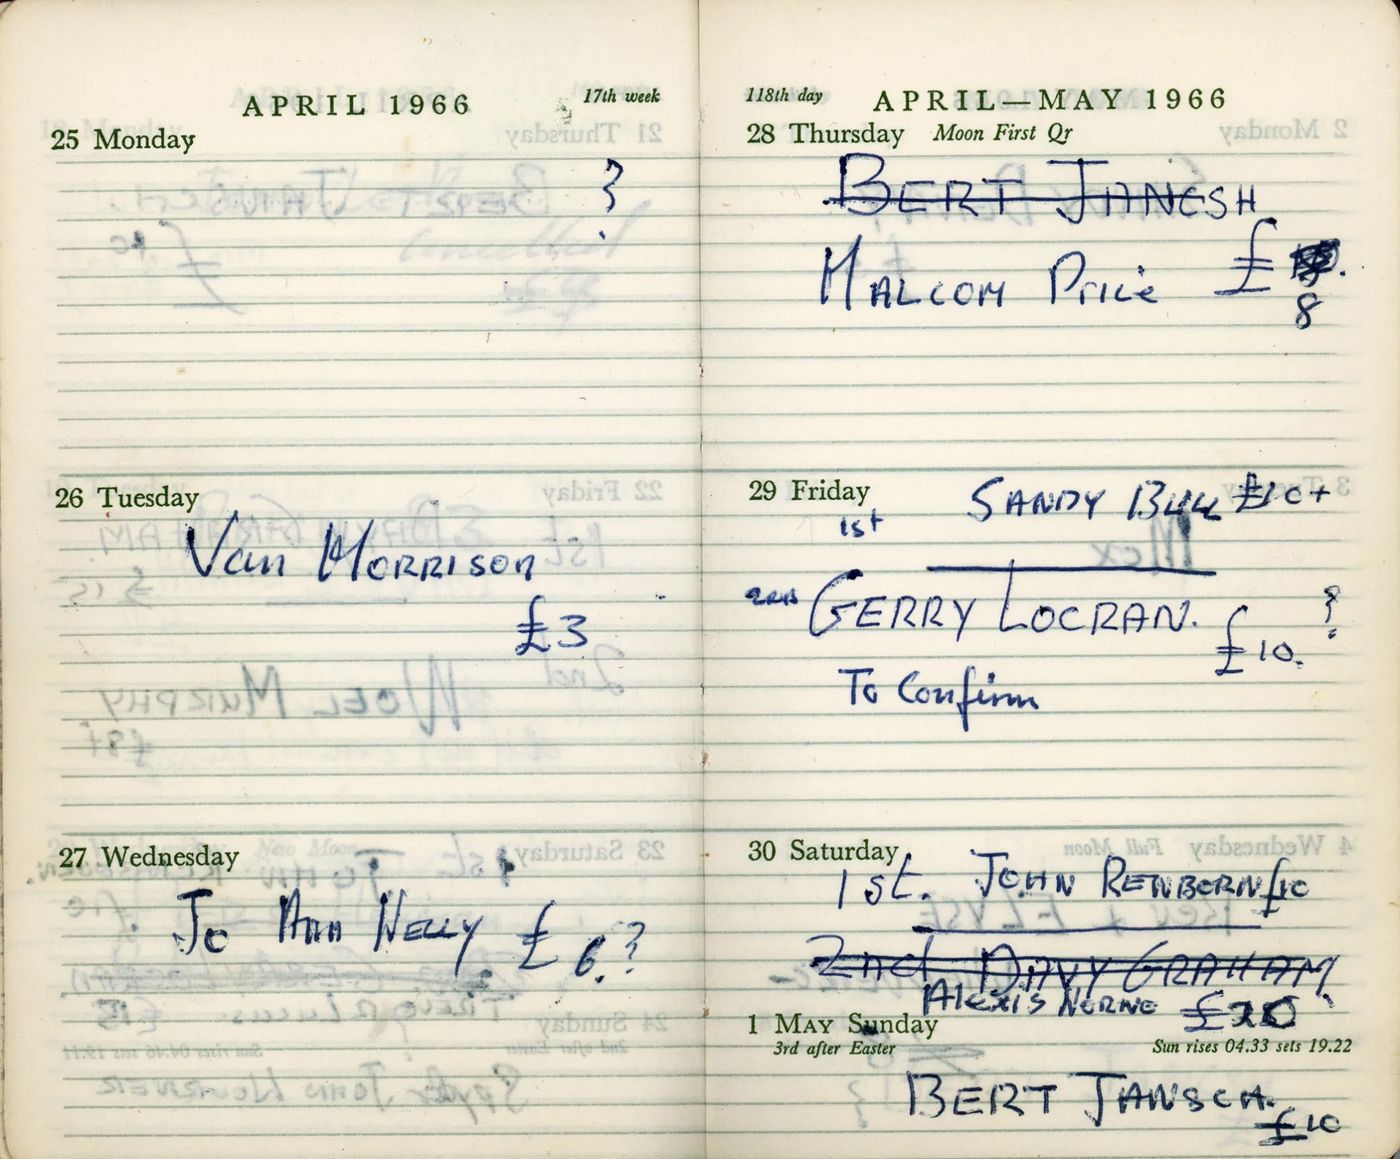 APRIL 1966
17th week
25 Monday
?
26 Tuesday
Van MORRISON
£3
27 Wednesday
Jo Ann KELLY £6.?
118th day
APRIL—MAY 1966
28 Thursday Moon First Qr
BERT JANCSH
MALCOM Price £
8
29 Friday
SANDY BULL £10+
1st
2nd GERRY LOCRAN. ?
£10.
To Confirm
30 Saturday
1st. JOHN RENBORN £10
2nd DAVY GRAHAM
ALEXIS KORNE
1 MAY Sunday
3rd after Easter
Sun rises 04.33 sets 19.22
BERT JANSCH.
£10